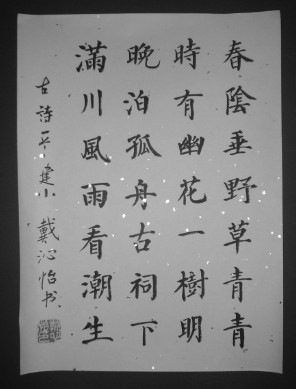 春陰垂野草青青
時有幽花一樹明
晚泊孤舟古祠下
滿川風雨看潮生
古詩一首 建小 戴沁怡书